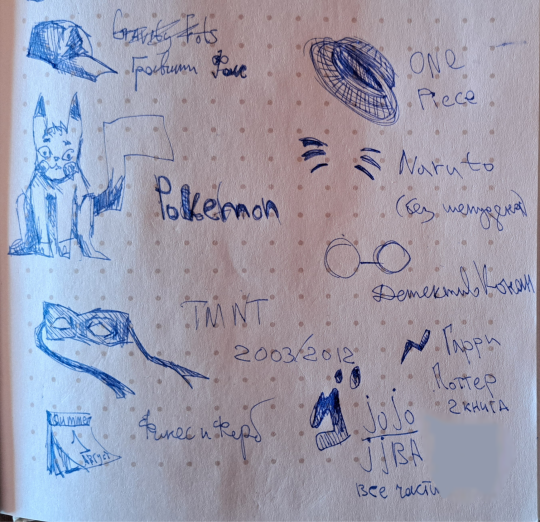 Гравити Фолс
Pokemon
TMNT
2003/2012
Summer
1
Август
Финес и Ферб
ONE
Piece
Naruto
Детектив Конан
Гарри
Поттер
2 книга
JoJo
JJBA
все части